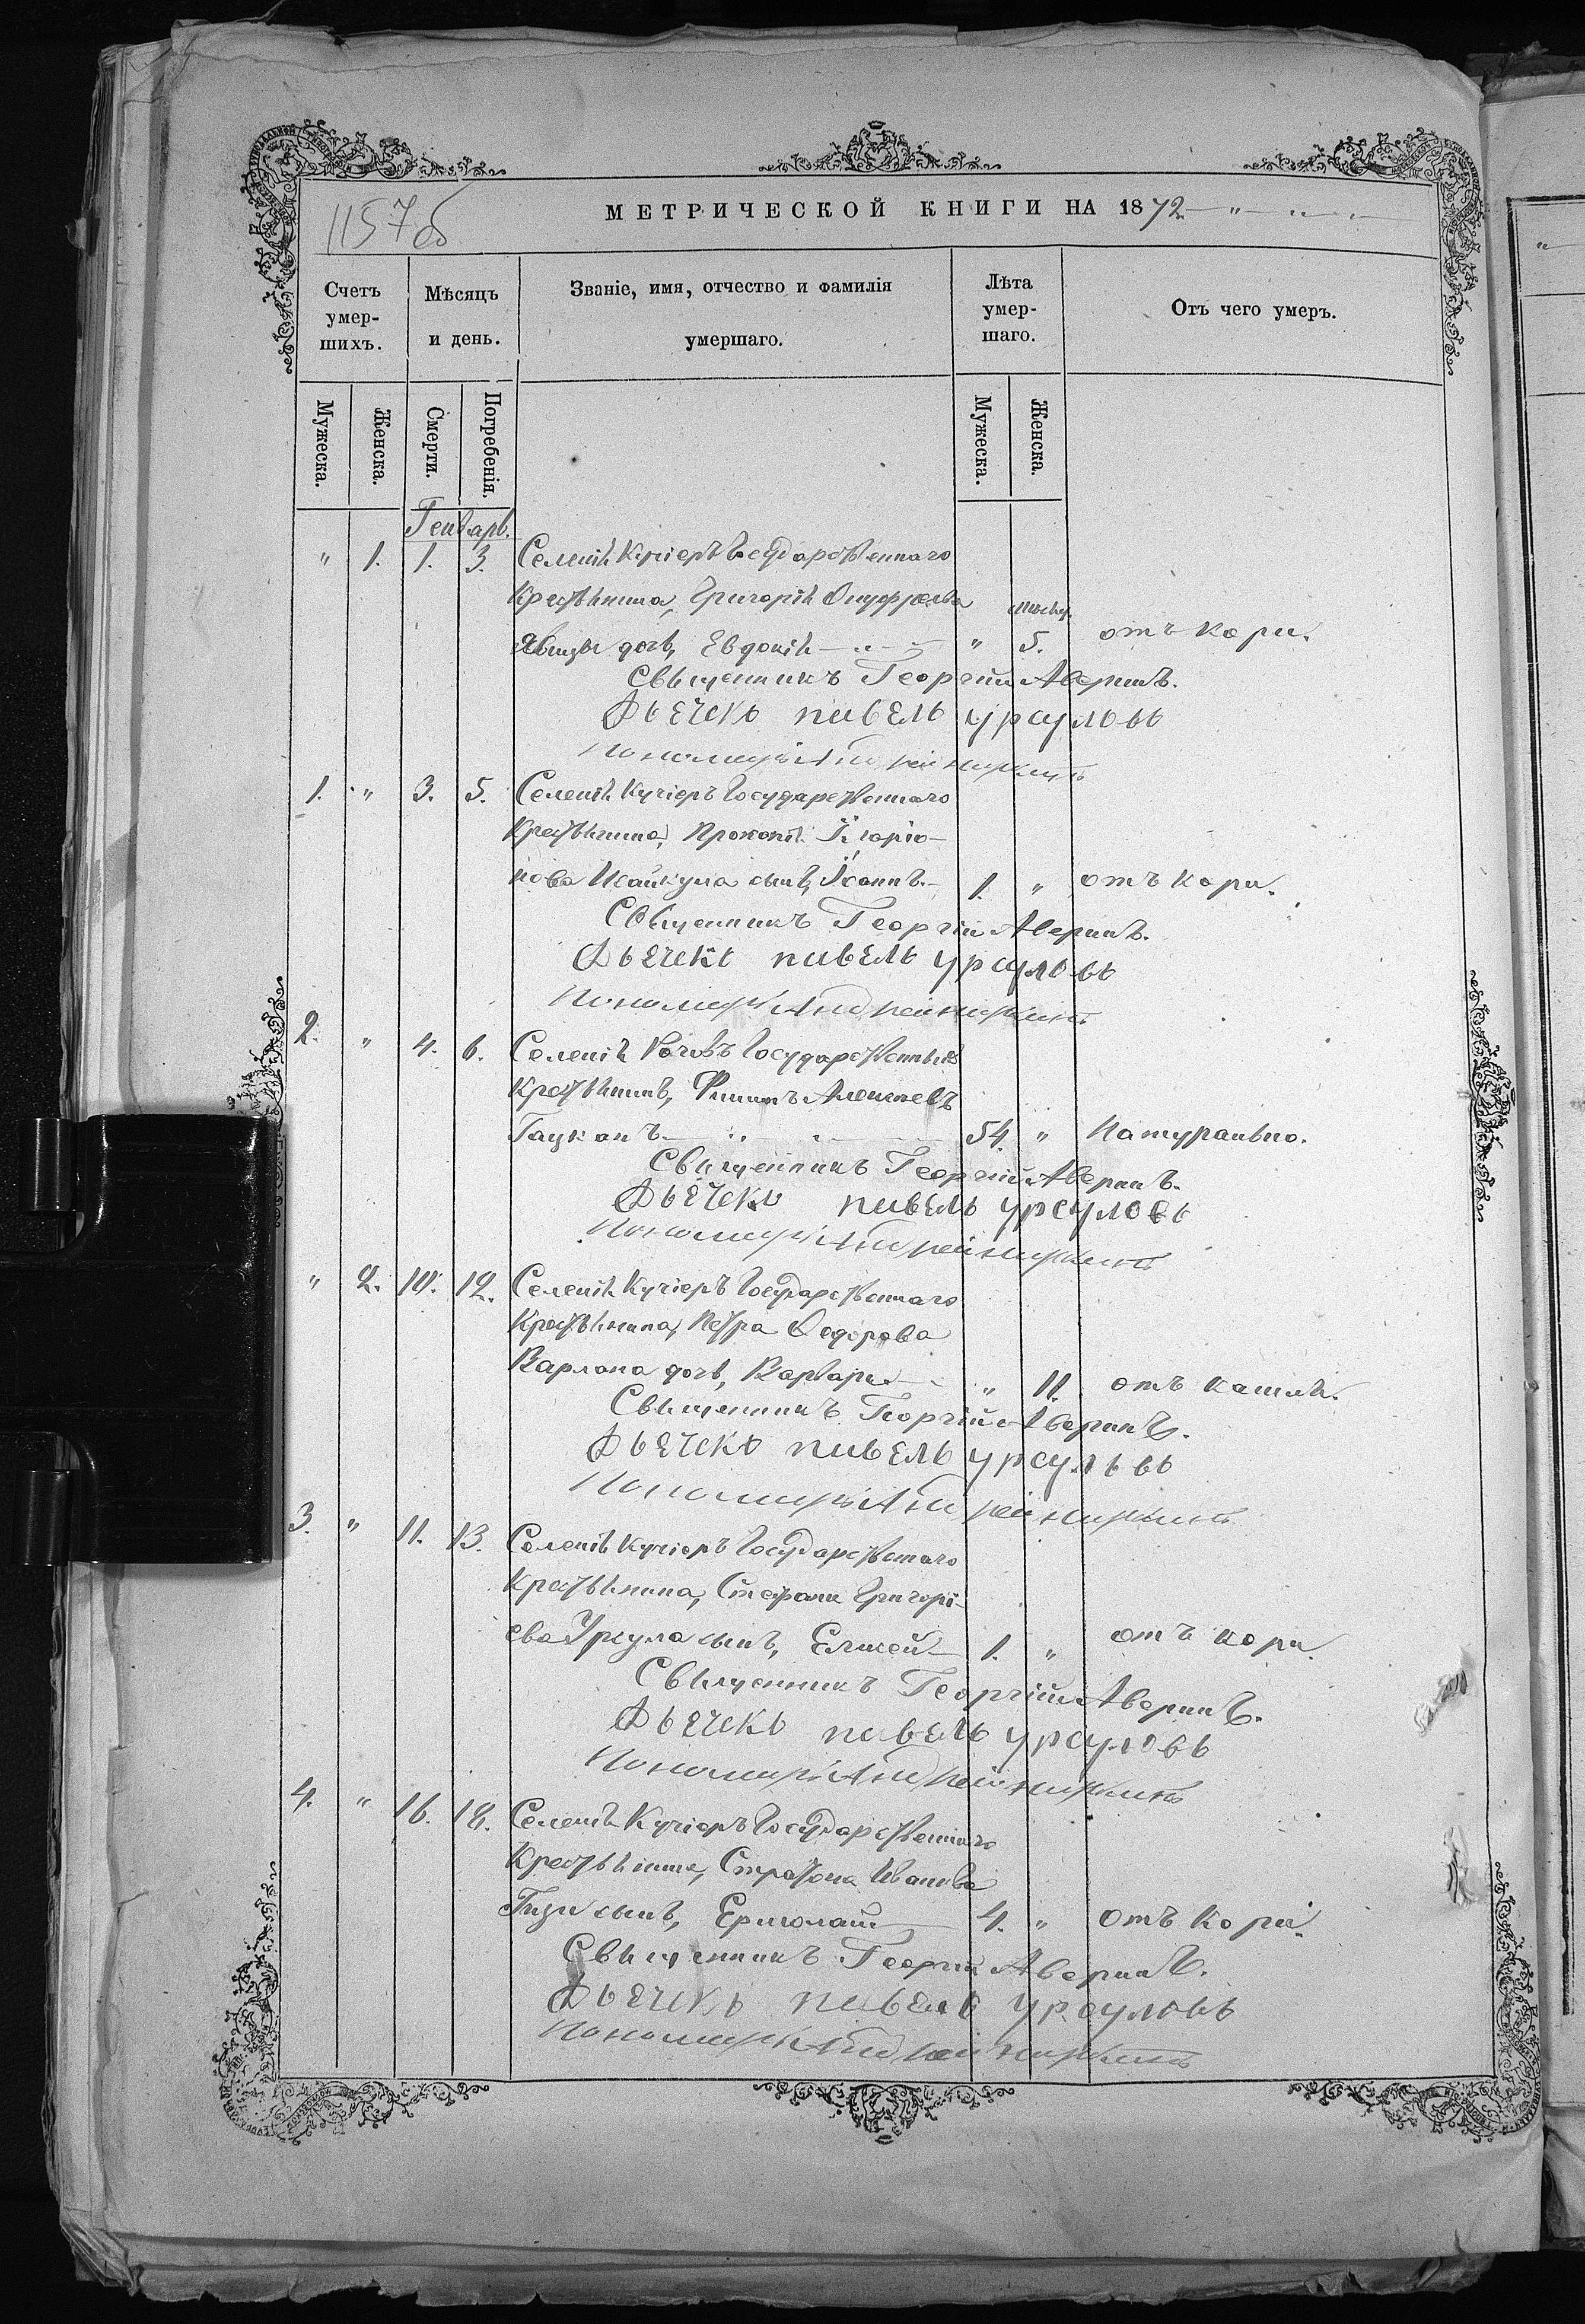 1157об
МЕТРИЧЕСКОЙ КНИГИ НА 1872
Счетъ умер-шихъ.
Мѣсяцъ и день.
Званіе, имя, отчество и фамилія умершаго.
Лѣта умер-шаго.
Отъ чего умеръ.
Мужеска.
Женска.
Смерти.
Погребенія.
Мужеска.
Женска.
Генварь.
" 1. 1. 3. Селенія Кучіеръ Государственнаго
Крестьянина, Григорія Онуфріева
дочь, Евдокія " 5. отъ кори.
Священникъ Георгій Аверинъ.
Дьячекъ павелъ урсуловъ
Пономарь Андрей
1. " 3. 5. Селенія Кучіеръ Государственнаго
Крестьянина, Прокопія Иларіо-
нова сынъ, Іоаннъ 1. " отъ кори.
Священникъ Георгій Аверинъ.
Дьячекъ павелъ урсуловъ
Пономарь Андрей
2. " 4. 6. Селенія Рачовъ Государственный
Крестьянинъ, Филипъ Алексеевъ
Гаукanъ 54. " Натурально.
Священникъ Георгій Аверинъ.
Дьячекъ павелъ урсуловъ
Пономарь Андрей
" 2. 10. 12. Селенія Кучіеръ Государственнаго
Крестьянина, Петра Федорова
Варлана дочь, Варвара " 11. отъ кашля.
Священникъ Георгій Аверинъ.
Дьячекъ павелъ урсуловъ
Пономарь Андрей
3. " 11. 13. Селенія Кучіеръ Государственнаго
Крестьянина, Стефана Григорі-
ева Урсула сынъ, Елисей 1. " отъ кори.
Священникъ Георгій Аверинъ.
Дьячекъ павелъ урсуловъ
Пономарь Андрей
4. " 16. 18. Селенія Кучіеръ Государственнаго
Крестьянина, Стратона Иванова
Гизи сынъ, Ермолай 4. " отъ кори.
Священникъ Георгій Аверинъ.
Дьячекъ павелъ урсуловъ
Пономарь Андрей